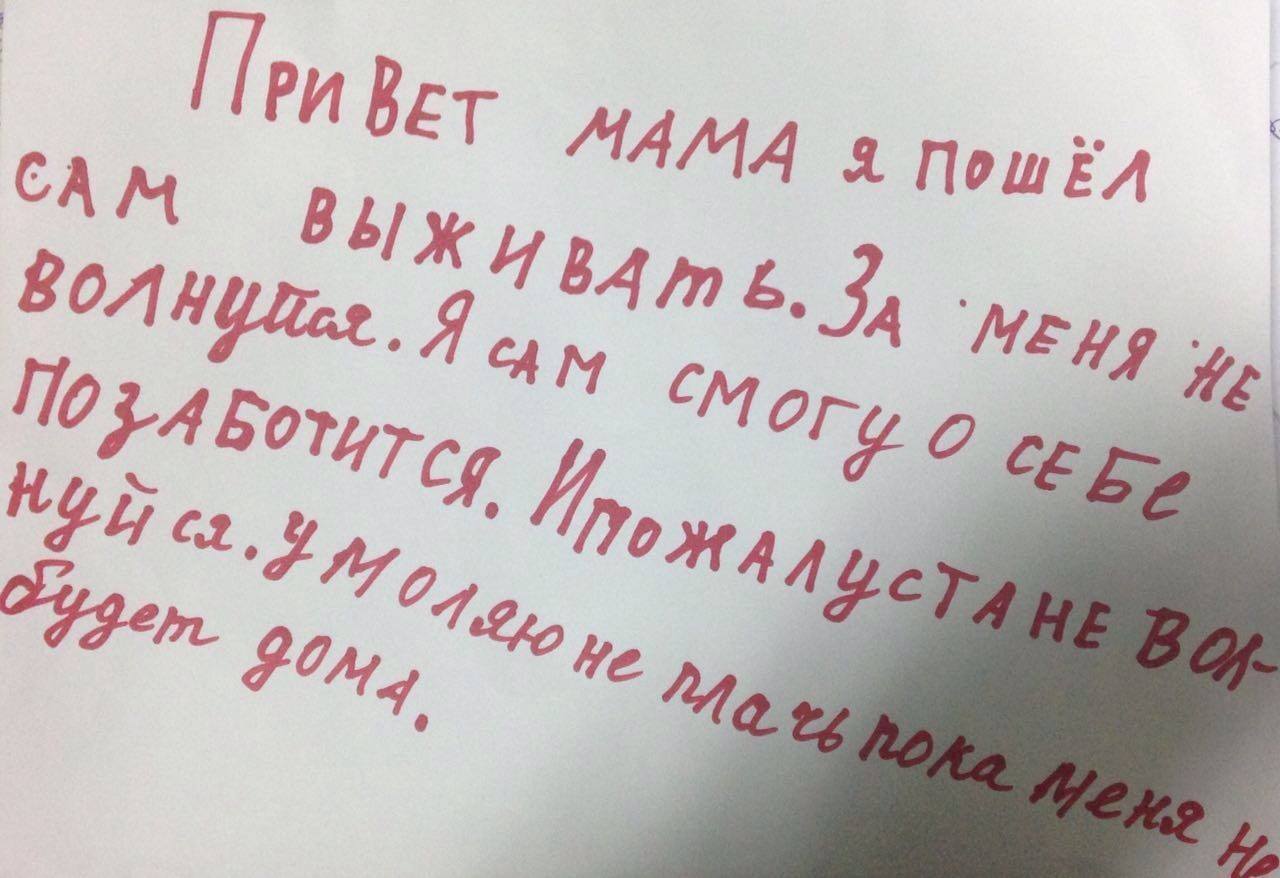 Привет мама я пошёл
сам выживать. За меня не
волнуйся. Я сам смогу о себе
позаботится. И пожалуста не вол-
нуйся. умоляю не плачь пока меня не
будет дома.